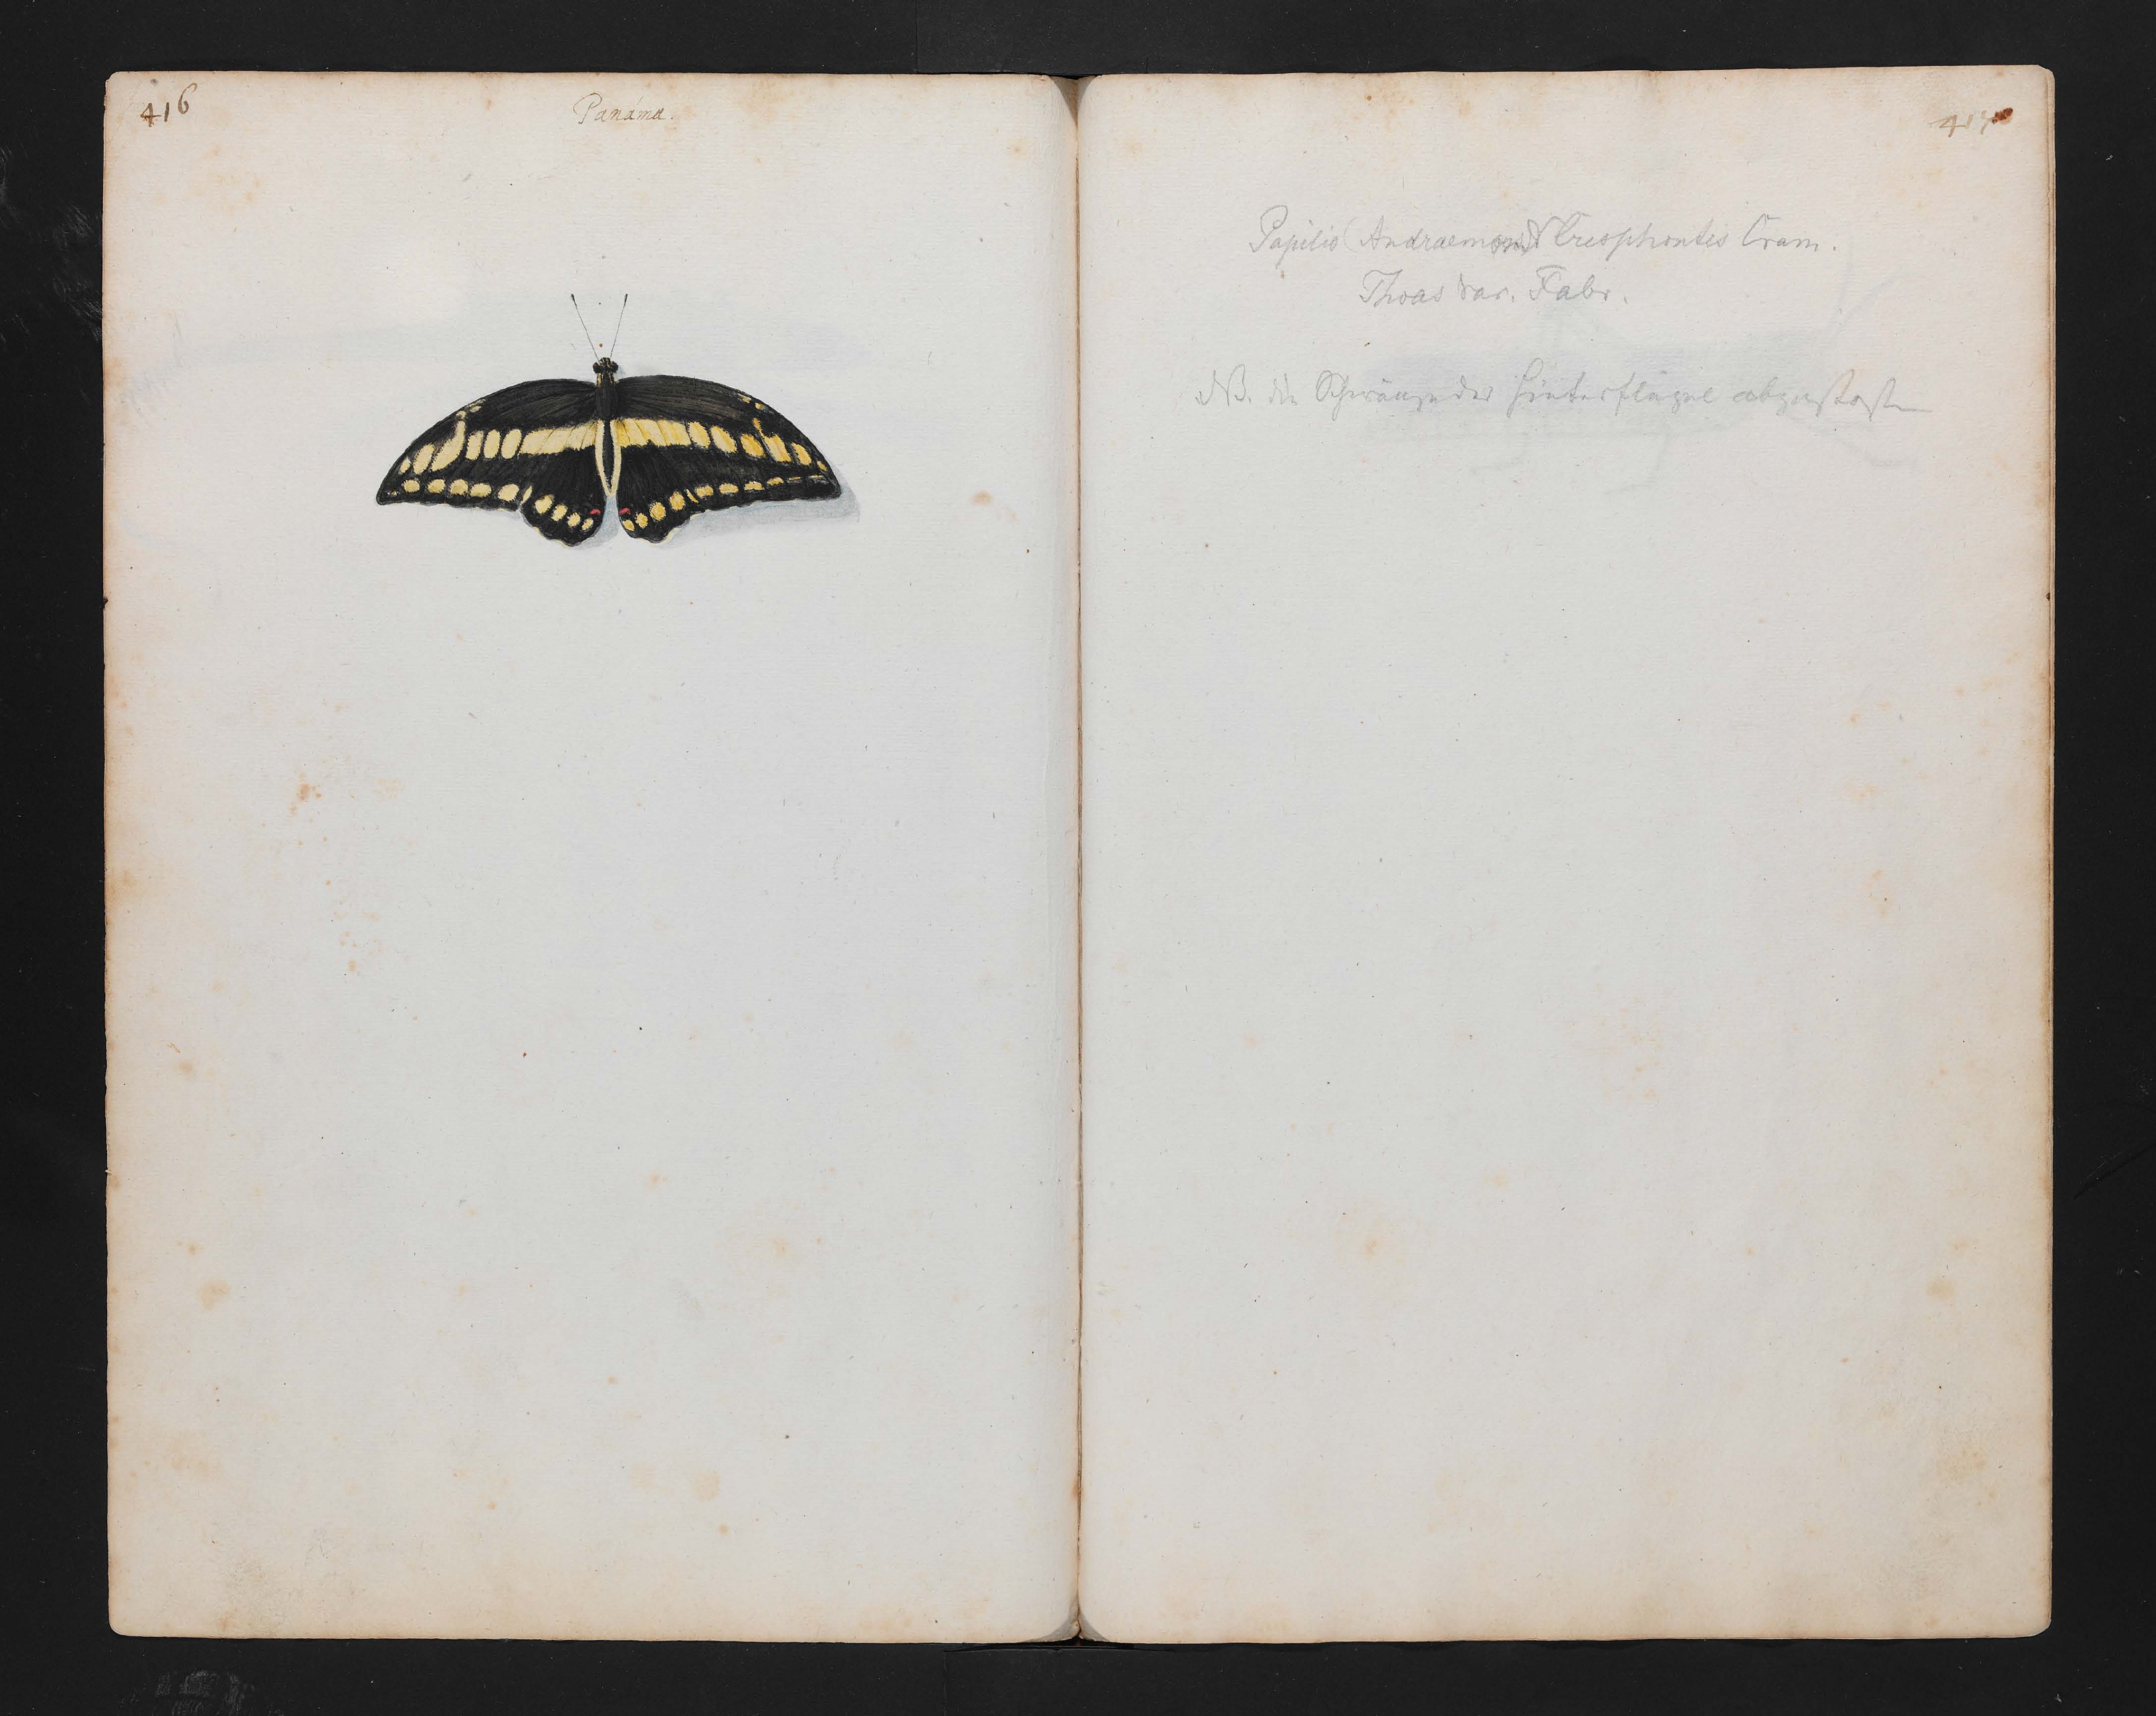 416
Panáma.
417
Papilio (Andraemon) Cresphontes Cram.
Thoas var. Fabr.
NB. die Schwänze der Hinterflügel abgestoßen